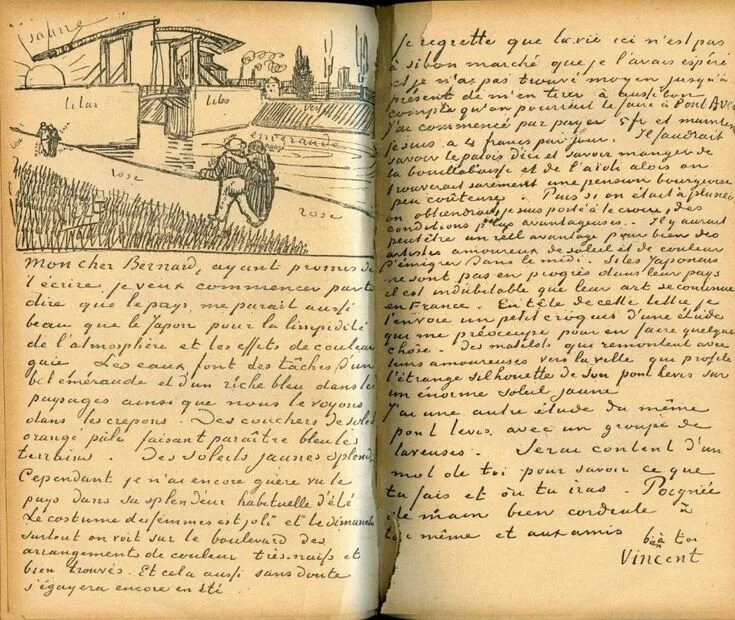 jaune
lilas
lilas
vert
emeraude
rose
rose
rose
mon cher Bernard, ayant promis de
t'écrire, je veux commencer par te
dire que le pays me parait aussi
beau que le Japon pour la limpidité
de l'atmosphère et les effets de couleur
gaie. Les eaux font des tâches d'un
bel émeraude et d'un riche bleu dans les
paysages ainsi que nous le voyons
dans les crepons. Des couchers de soleil
orangé pâle faisant paraître bleu les
terrains. Des soleils jaunes splend
Cependant je n'ai encore guère vu le
pays dans sa splendeur habituelle d'été
Le costume des femmes est joli et le dimanche
surtout on voit sur le boulevard des
arrangements de couleur très naïfs et
bien trouvés. Et cela aussi sans doute
s'égayera encore en été
Je regrette que la vie ici n'est pas
à si bon marché que je l'avais espéré
et je n'ai pas trouvé moyen jusqu'à
présent de m'en tirer à aussi bon
compte qu'on pourrait le faire à Pont Aven
J'ai commencé par payer 5 fr et mainten
je suis à 4 francs par jour. Il faudrait
savoir le patois d'ici et savoir manger de
la bouillabaisse et de l'aïoli alors on
trouverait surement une pension bourgeoise
peu coûteuse. Puis si on était à plusieurs
on obtiendrait, je suis porté à le croire, des
conditions plus avantageuses. Il y aurait
peut être un réel avantage pour bien des
artistes amoureux de soleil et de couleur
d'émigrer dans le midi. Si les Japonais
ne sont pas en progrès dans leur pays
il est indubitable que leur art se continue
en France. En tête de cette lettre je
t'envoie un petit croquis d'une étude
qui me préoccupe pour en faire quelque
chose. Des matelots qui remontent avec
leurs amoureuses vers la ville qui profile
l'étrange silhouette de son pont levis sur
un énorme soleil jaune
J'ai une autre étude du même
pont levis avec un groupe de
laveuses. Serai content d'un
mot de toi pour savoir ce que
tu fais et où tu iras. Poignée
de main bien cordiale à
toi même et aux amis
bien à toi
Vincent